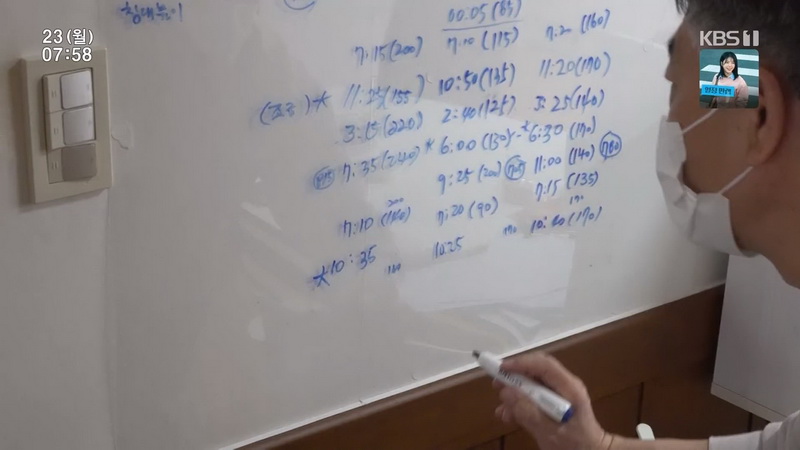 23(월)
07:58
KBS 1
00:05 (85)
7:15 (200) 7:00 (115) 7:20 (160)
★ 11:25 (155) 10:50 (135) 11:20 (170)
3:15 (220) 2:40 (125) 3:25 (140)
7:35 (240) ★ 6:00 (130) ★ 6:30 (170)
9:25 (200) 11:00 (140) 780
7:10 7:20 (90) 7:15 (135)
★ 10:35 10:25 170 (170)